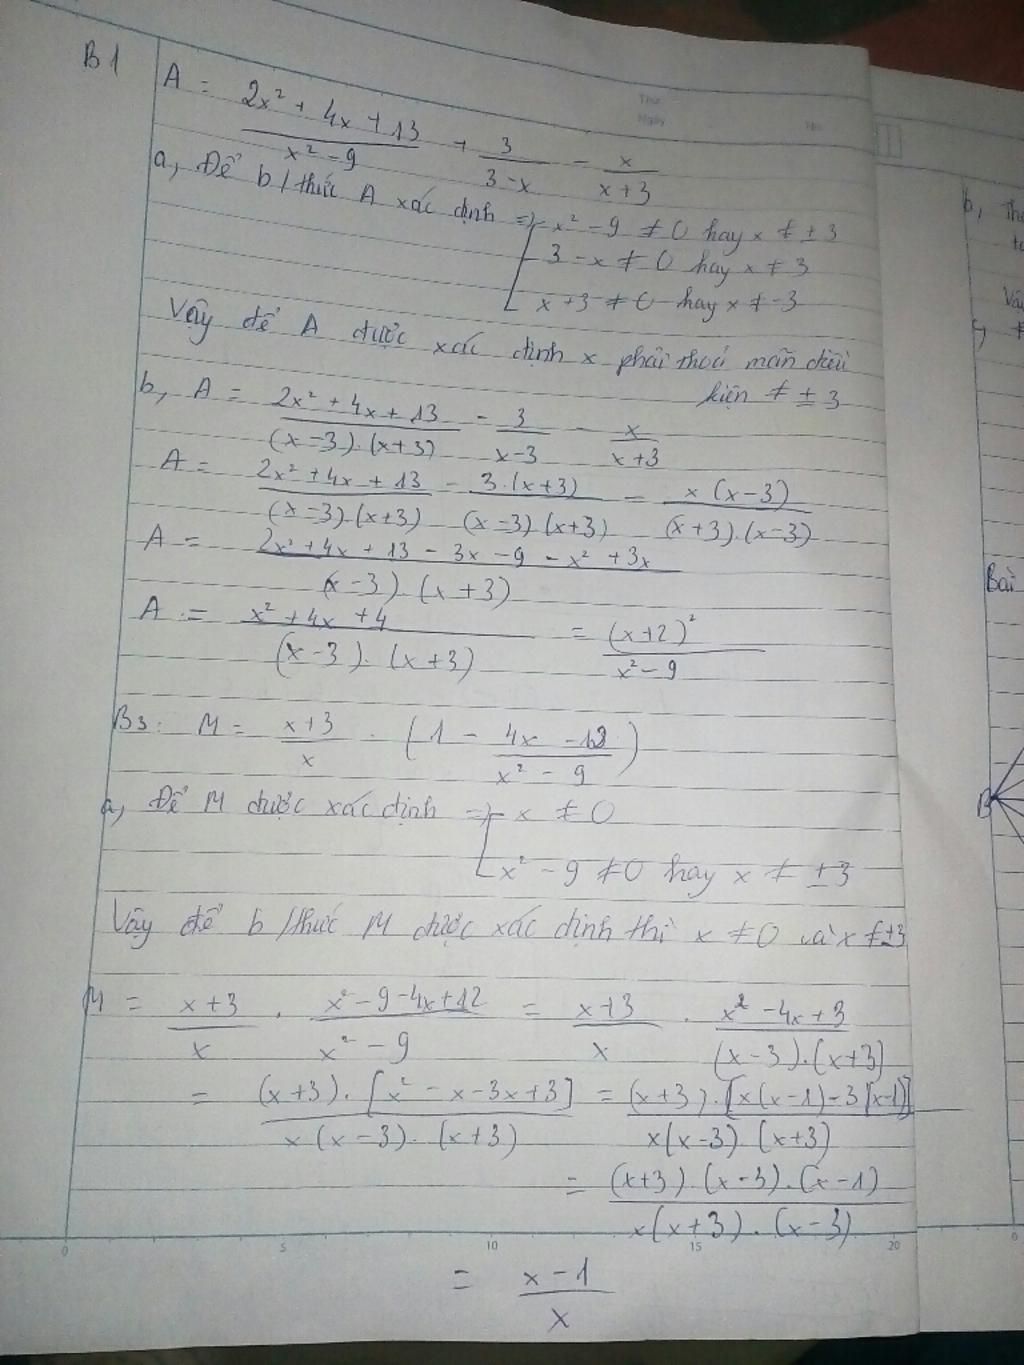 B1
A = (2x² + 4x + 13)/(x² - 9) + 3/(3-x) - x/(x+3)
Thứ
Ngày
No
a, Để b/thức A xác định => [ x² - 9 ≠ 0 hay x ≠ ± 3
3 - x ≠ 0 hay x ≠ 3
x + 3 ≠ 0 hay x ≠ -3
Vậy để A được xác định x phải thoả mãn điều
kiện ≠ ± 3
b, A = (2x² + 4x + 13)/((x-3).(x+3)) - 3/(x-3) - x/(x+3)
A = (2x² + 4x + 13)/((x-3).(x+3)) - (3.(x+3))/((x-3)(x+3)) - (x(x-3))/((x+3).(x-3))
A = (2x² + 4x + 13 - 3x - 9 - x² + 3x)/((x-3).(x+3))
A = (x² + 4x + 4)/((x-3).(x+3)) = (x+2)²/(x²-9)
B3: M = (x+3)/x . (1 - (4x - 12)/(x² - 9))
a, Để M được xác định => [ x ≠ 0
x² - 9 ≠ 0 hay x ≠ ± 3
Vậy để b/thức M được xác định thì x ≠ 0 và x ≠ ±3
M = (x+3)/x . (x² - 9 - 4x + 12)/(x² - 9) = (x+3)/x . (x² - 4x + 3)/((x-3).(x+3))
= ((x+3).[x² - x - 3x + 3])/(x(x-3).(x+3)) = ((x+3).[x(x-1)-3(x-1)])/(x(x-3).(x+3))
= ((x+3).(x-3).(x-1))/(x(x+3).(x-3))
0 5 10 15 20
= (x-1)/x
b,
Bài
B
0